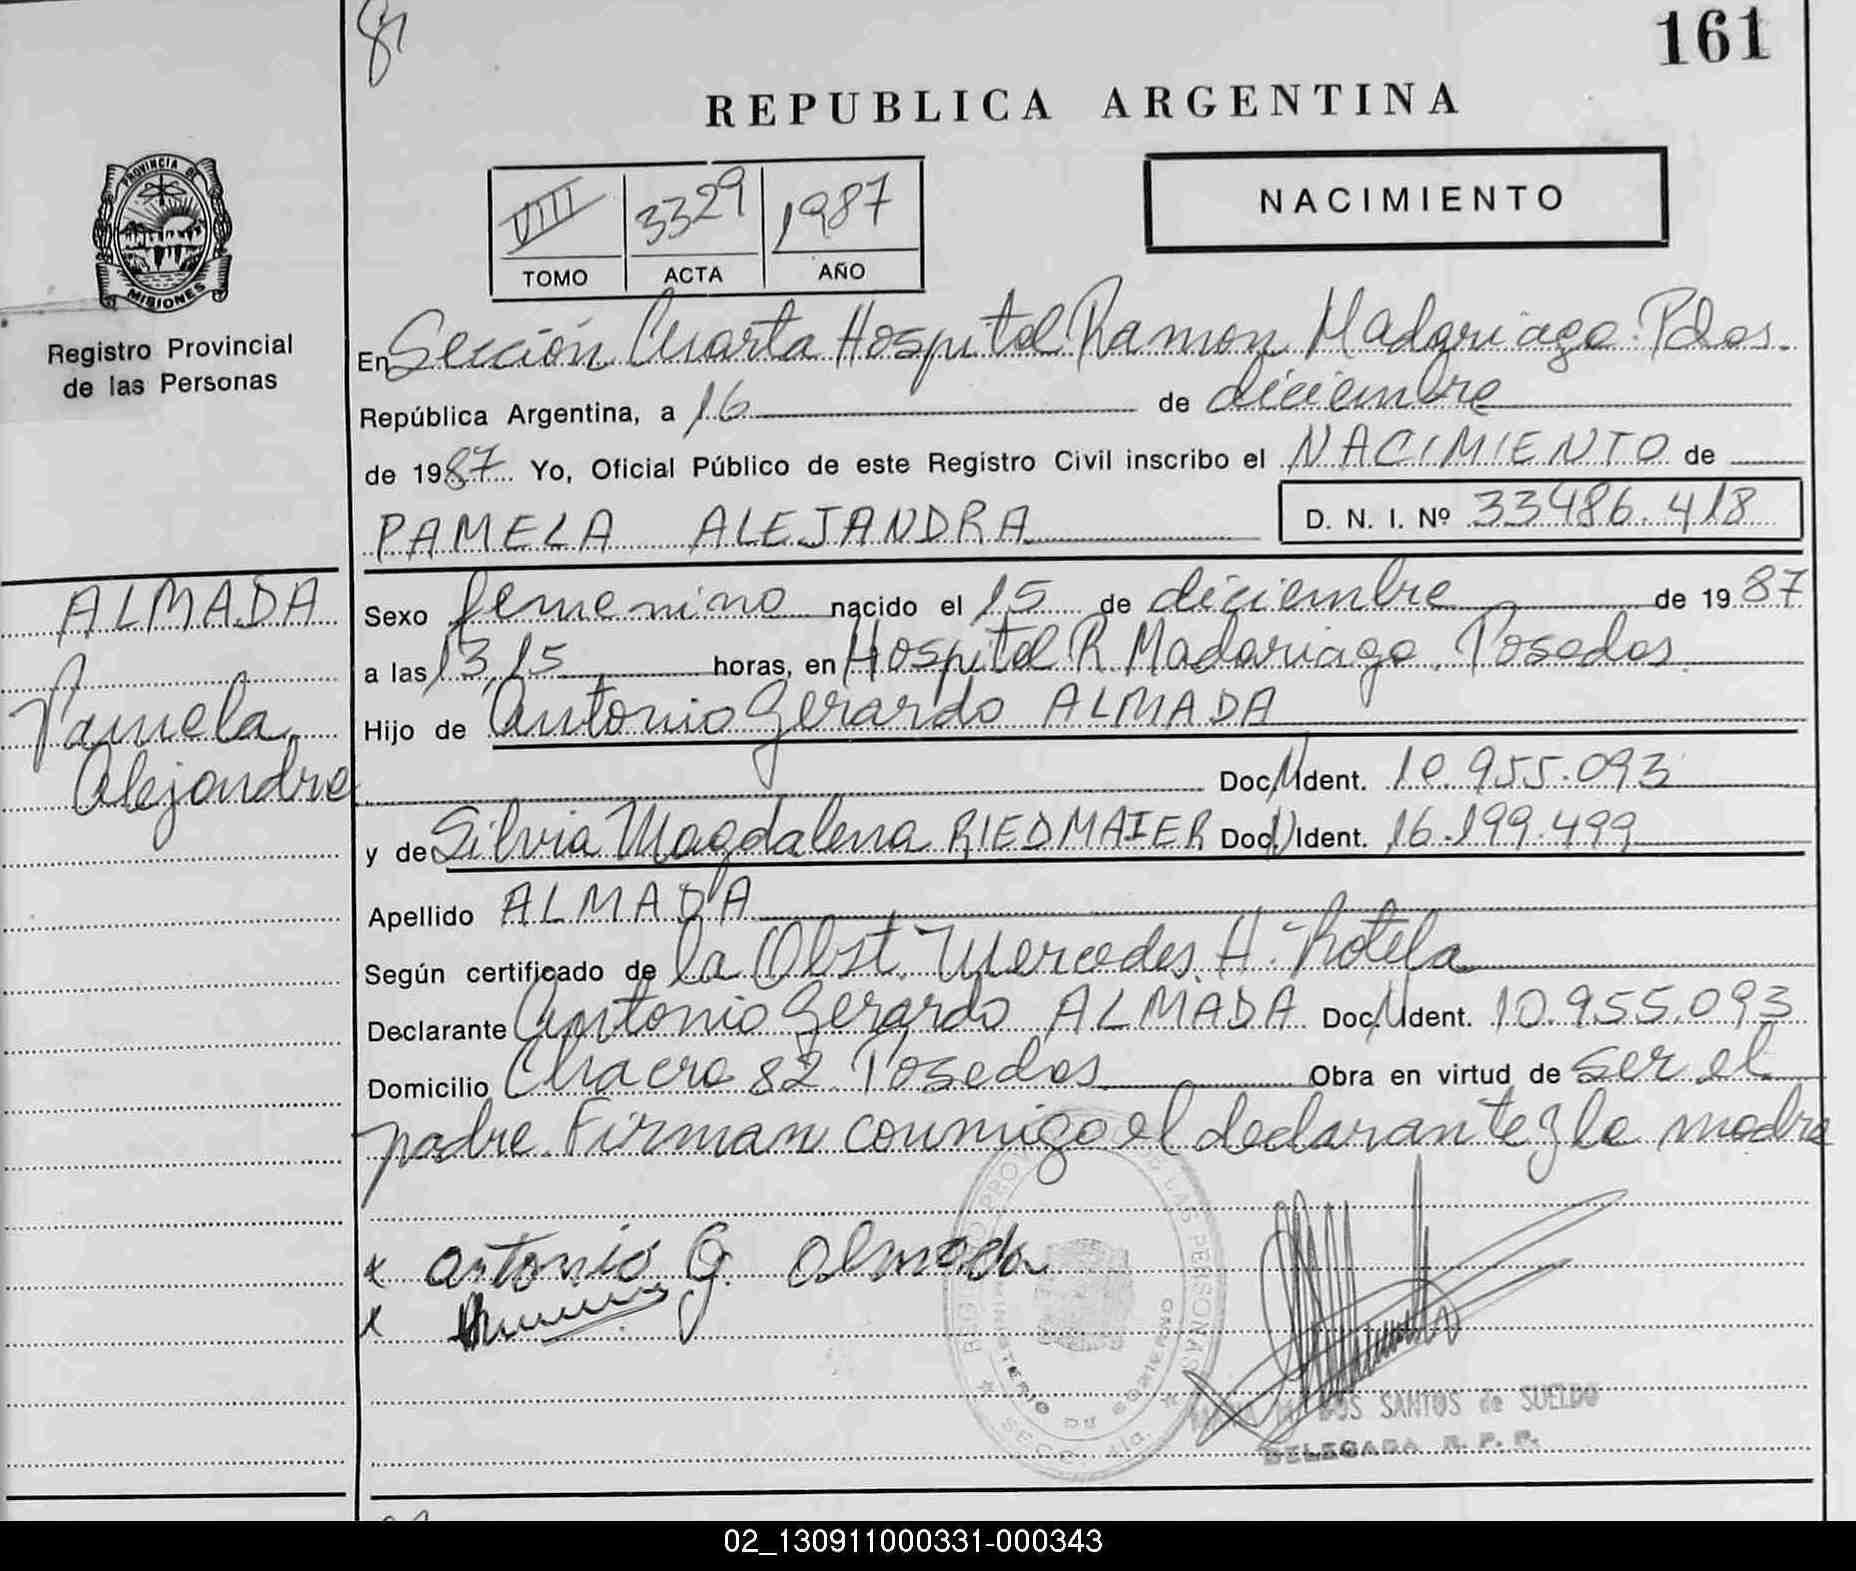 161
REPUBLICA ARGENTINA
PROVINCIA DE
MISIONES
Registro Provincial
de las Personas
VIII 3329 1987
TOMO ACTA AÑO
NACIMIENTO
En Sección Cuarta Hospital Ramon Madariaga. Pdas.
República Argentina, a 16 de diciembre
de 1987 Yo, Oficial Público de este Registro Civil inscribo el NACIMIENTO de
PAMELA ALEJANDRA D. N. I. Nº 33486.418
ALMADA
Pamela
Alejandra
Sexo femenino nacido el 15 de diciembre de 1987
a las 13,15 horas, en Hospital R Madariaga. Posadas
Hijo de Antonio Gerardo ALMADA
Doc. Ident. 10.955.093
y de Silvia Magdalena RIEDMAIER Doc. Ident. 16.199.499
Apellido ALMADA
Según certificado de la Obst. Mercedes. H. Rotela
Declarante Antonio Gerardo ALMADA Doc. Ident. 10.955.093
Domicilio Chacra 82 Posadas Obra en virtud de ser el
padre. Firman conmigo el declarante y la madre
x Antonio G. Almada
x
REGISTRO PRO LAS PERSONAS
MINISTERIO DE GOBIERNO
SECC. 4ta.
DOS SANTOS de SUELDO
DELEGADA R. P. P.
02_130911000331-000343